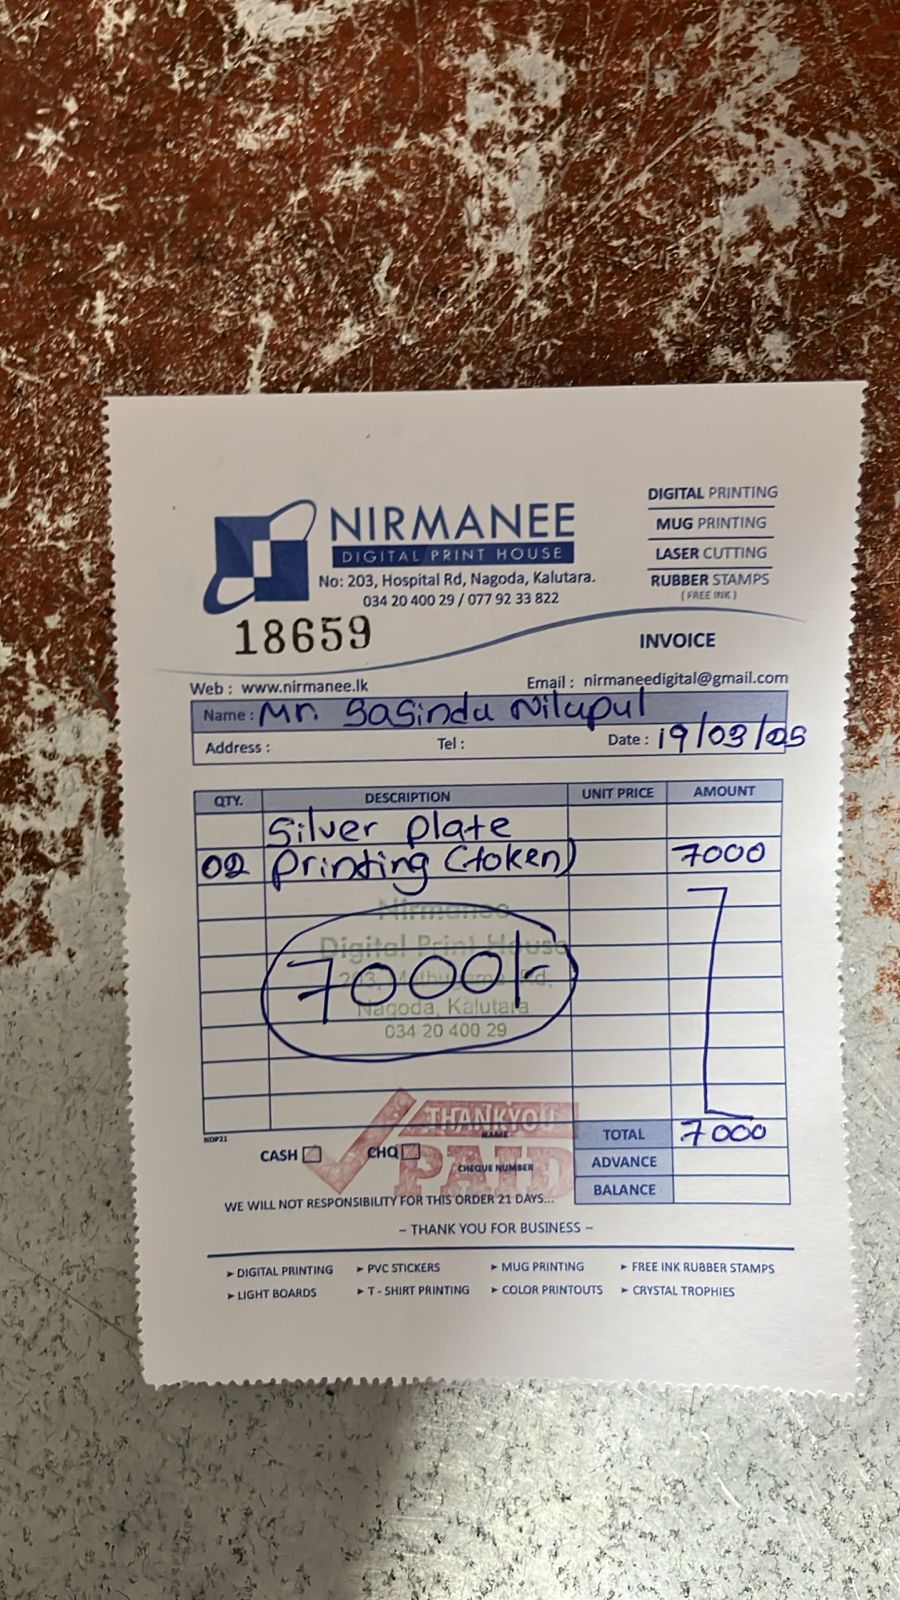 NIRMANEE
DIGITAL PRINT HOUSE
No: 203, Hospital Rd, Nagoda, Kalutara.
034 20 400 29 / 077 92 33 822
DIGITAL PRINTING
MUG PRINTING
LASER CUTTING
RUBBER STAMPS
( FREE INK )
18659
INVOICE
Web : www.nirmanee.lk Email : nirmaneedigital@gmail.com
Name : Mr. Sasindu Nilupul
Address : Tel : Date : 19/03/25
QTY. DESCRIPTION UNIT PRICE AMOUNT
Silver Plate
02 Printing (token) 7000
Nirmanee
Digital Print House
203, Rd,
Nagoda, Kalutara
034 20 400 29
7000/-
THANK YOU
PAID
TOTAL 7000
NDP23
NAME
CASH CHQ
CHEQUE NUMBER
ADVANCE
BALANCE
WE WILL NOT RESPONSIBILITY FOR THIS ORDER 21 DAYS...
~ THANK YOU FOR BUSINESS ~
➤ DIGITAL PRINTING ➤ PVC STICKERS ➤ MUG PRINTING ➤ FREE INK RUBBER STAMPS
➤ LIGHT BOARDS ➤ T - SHIRT PRINTING ➤ COLOR PRINTOUTS ➤ CRYSTAL TROPHIES